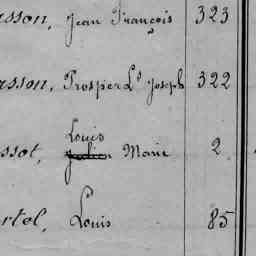 sson, Jean François 323
sson, Prosper Ld Joseph 322
Louis
ssot, Marie 2
rtel, Louis 85